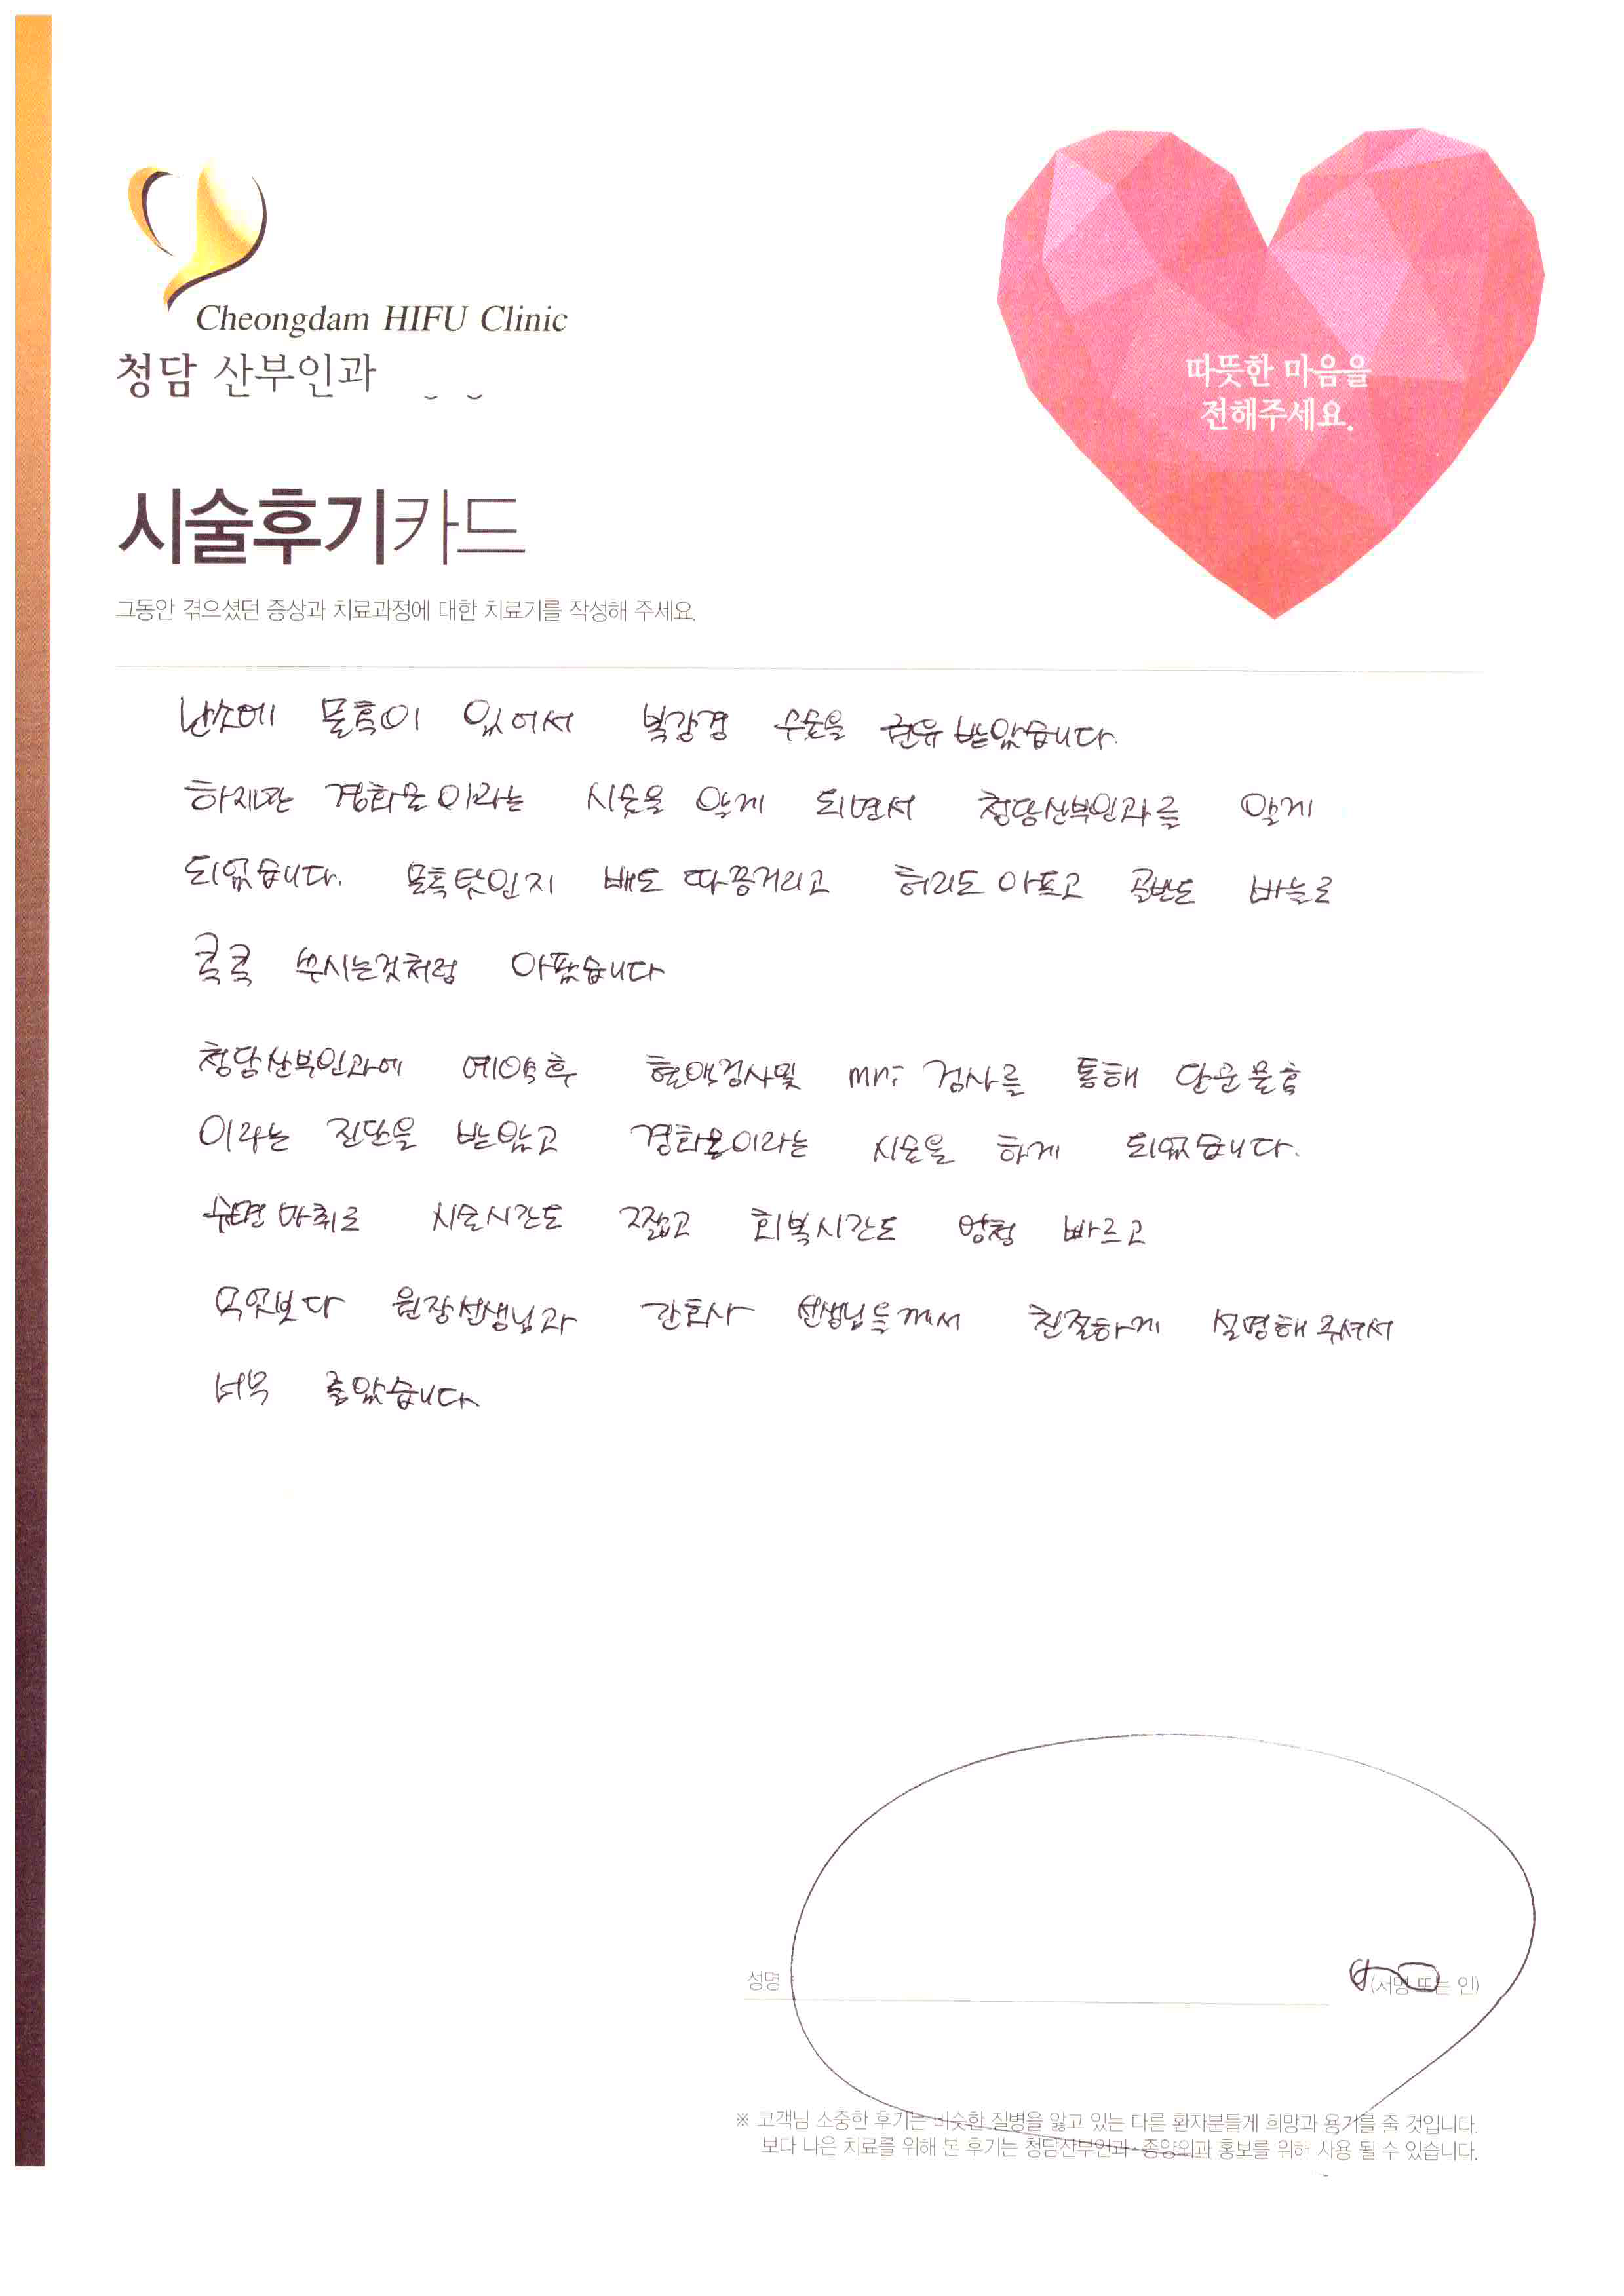 Cheongdam HIFU Clinic
청담 산부인과
따뜻한 마음을
전해주세요.
시술후기카드
그동안 겪으셨던 증상과 치료과정에 대한 치료기를 작성해 주세요.
난소에 물혹이 있어서 복강경 수술을 권유 받았습니다.
하지만 경화술이라는 시술을 알게 되면서 청담산부인과를 알게
되었습니다. 물혹탓인지 배도 따끔거리고 허리도 아프고 골반도 바늘로
콕콕 쑤시는것처럼 아팠습니다
청담산부인과에 예약후 혈액검사및 mri 검사를 통해 단순물혹
이라는 진단을 받았고 경화술이라는 시술을 하게 되었습니다.
수면마취로 시술시간도 짧고 회복시간도 엄청 빠르고
무엇보다 원장선생님과 간호사 선생님들께서 친절하게 설명해주셔서
너무 좋았습니다
성명 (서명 또는 인)
※ 고객님 소중한 후기는 비슷한 질병을 앓고 있는 다른 환자분들게 희망과 용기를 줄 것입니다.
보다 나은 치료를 위해 본 후기는 청담산부인과·종양외과 홍보를 위해 사용 될 수 있습니다.